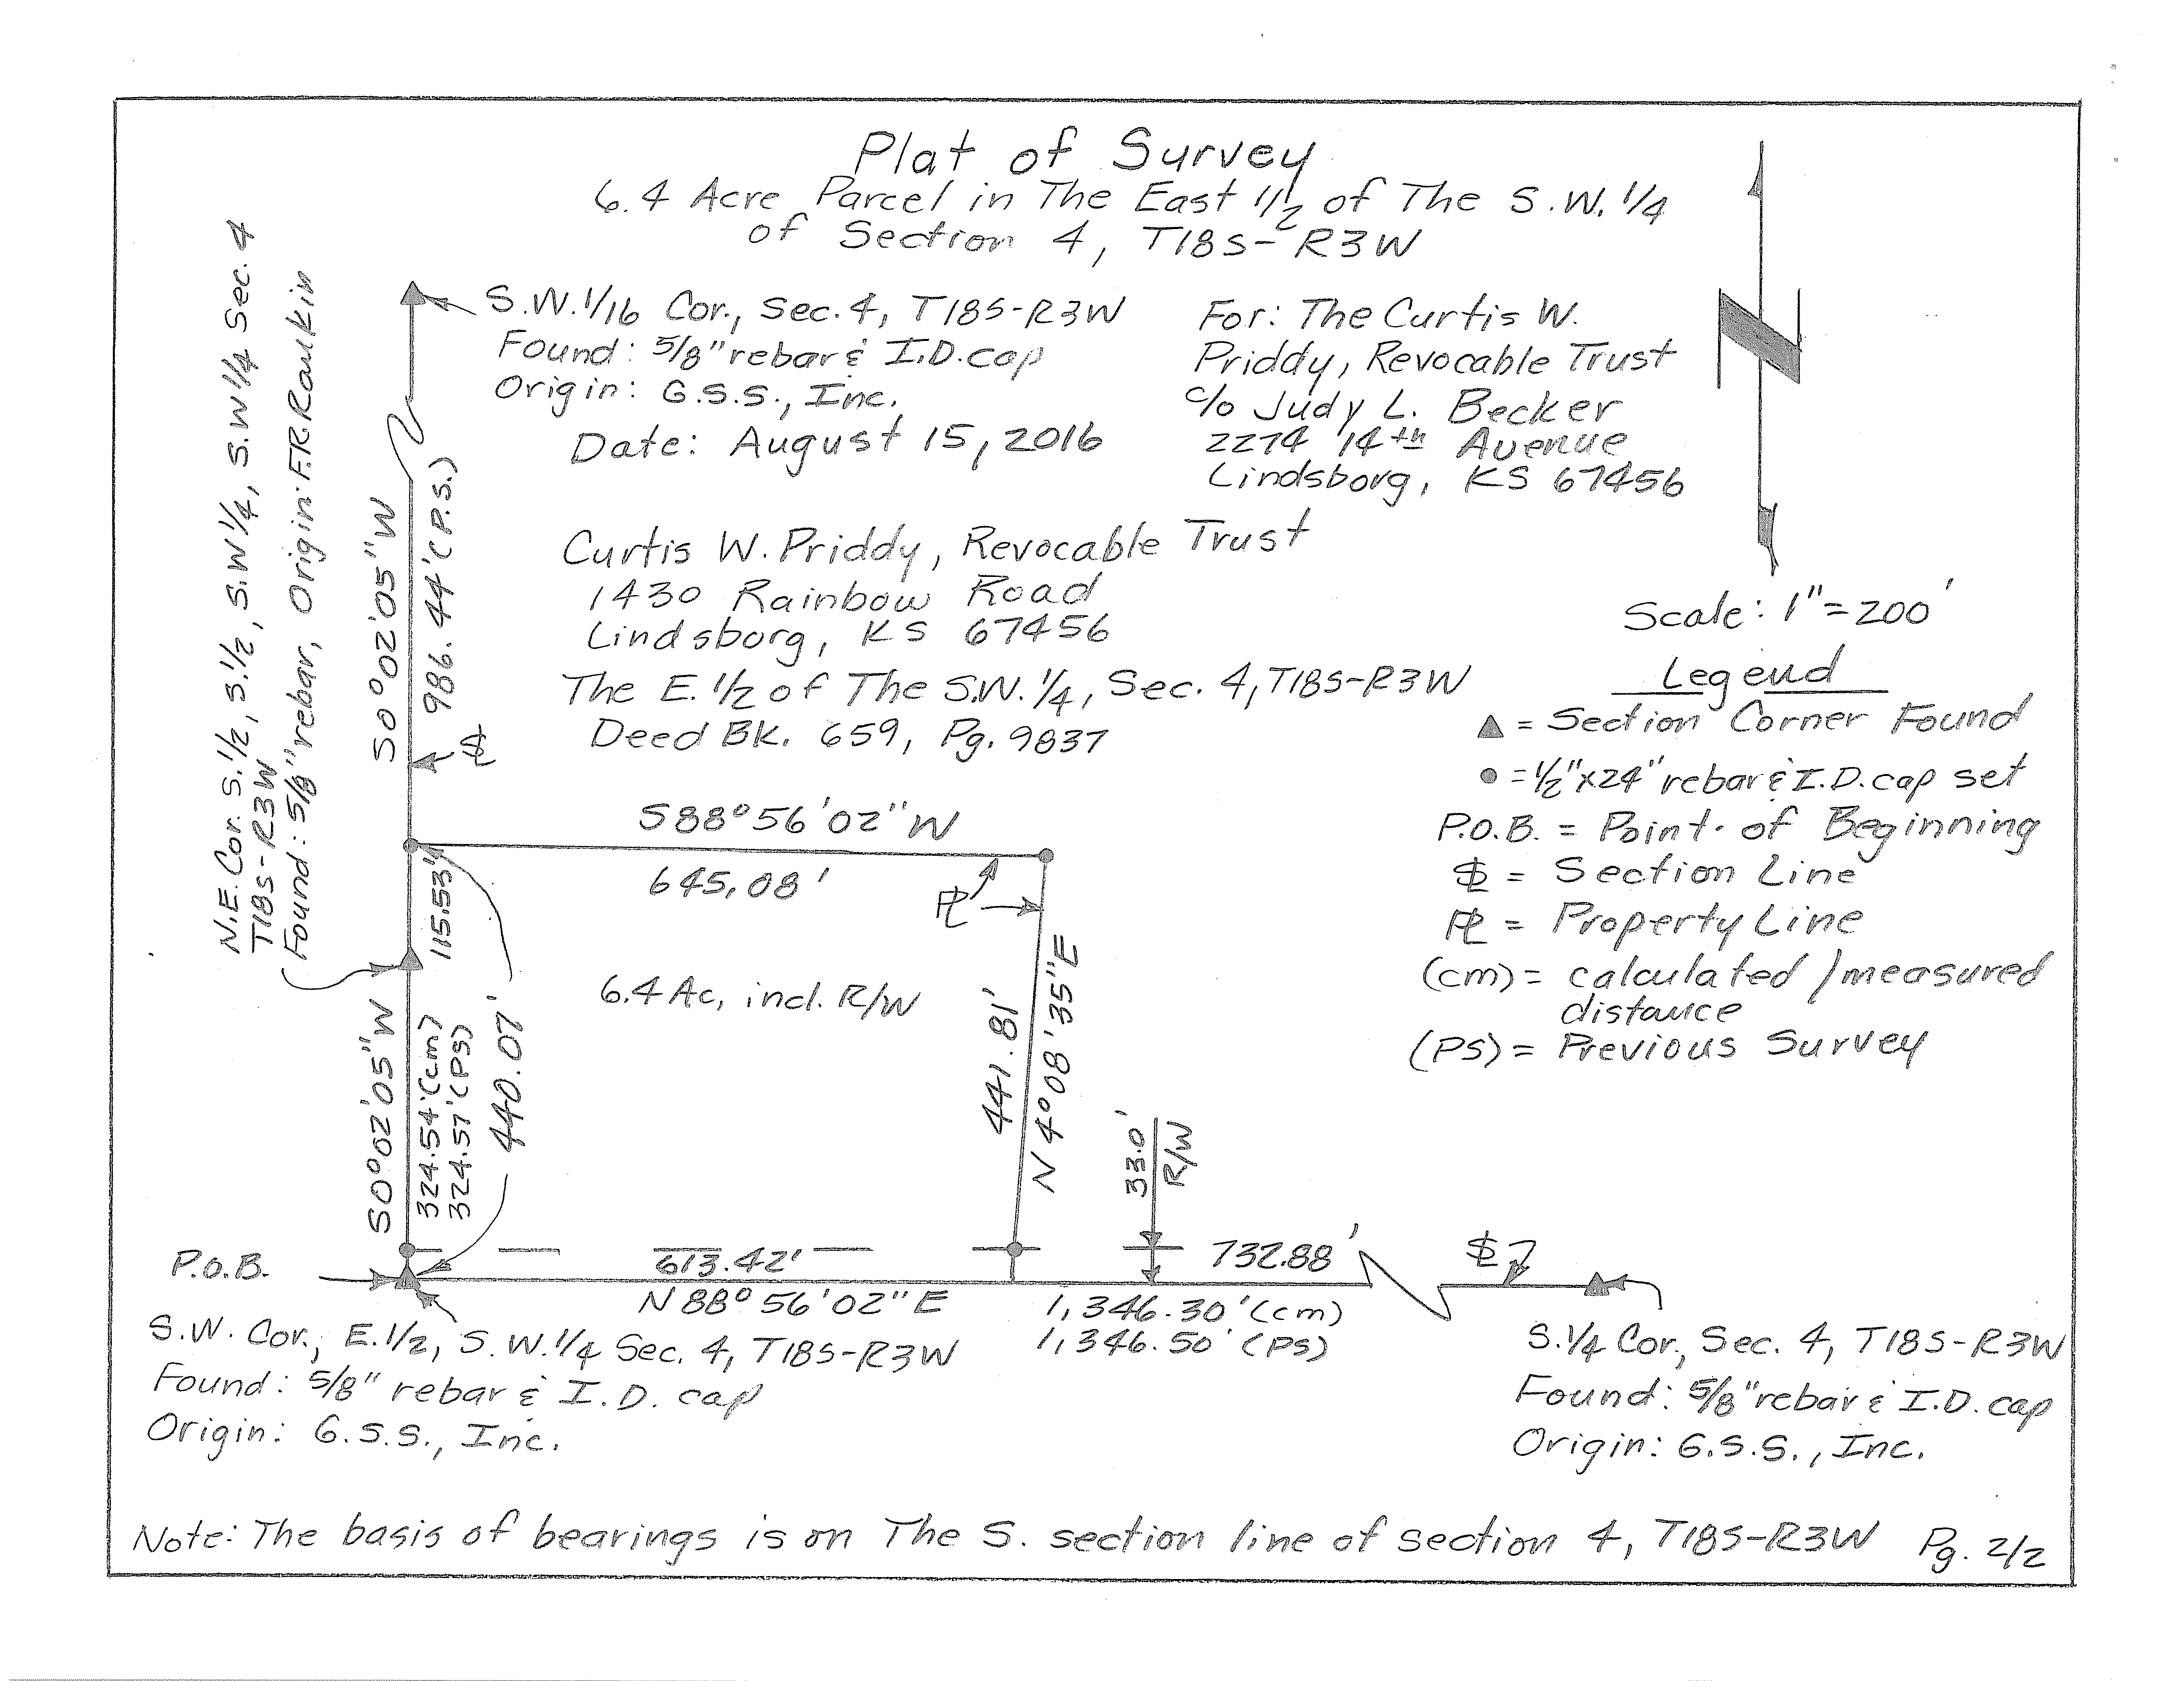 Plat of Survey
6.4 Acre Parcel in The East 1/2 of The S.W. 1/4
of Section 4, T18S-R3W
S.W. 1/16 Cor., Sec. 4, T18S-R3W
Found: 5/8" rebar & I.D. cap
Origin: G.S.S., Inc.
Date: August 15, 2016
For: The Curtis W.
Priddy, Revocable Trust
c/o Judy L. Becker
2274 14th Avenue
Lindsborg, KS 67456
N.E. Cor. S.1/2, S.1/2, S.W 1/4, S.W 1/4 Sec. 4
T18S-R3W
Found: 5/8" rebar, Origin: F.R. Rankin
S0°02'05"W
986.44' (P.S.)
SL
Curtis W. Priddy, Revocable Trust
1430 Rainbow Road
Lindsborg, KS 67456
The E. 1/2 of The S.W. 1/4, Sec. 4, T18S-R3W
Deed Bk. 659, Pg. 9837
Scale: 1"=200'
Legend
▲ = Section Corner Found
● = 1/2"x24" rebar & I.D. cap set
P.O.B. = Point of Beginning
SL = Section Line
PL = Property Line
(cm) = calculated/measured
distance
(PS) = Previous Survey
S88°56'02"W
645.08'
PL
115.53'
6.4 Ac, incl. R/W
S0°02'05"W
324.54' (cm)
324.57' (PS)
440.07'
441.81'
N4°08'35"E
33.0'
R/W
P.O.B.
613.42'
732.88'
SL
N88°56'02"E
1,346.30' (cm)
1,346.50' (PS)
S.W. Cor., E.1/2, S.W.1/4 Sec. 4, T18S-R3W
Found: 5/8" rebar & I.D. cap
Origin: G.S.S., Inc.
S.1/4 Cor., Sec. 4, T18S-R3W
Found: 5/8" rebar & I.D. cap
Origin: G.S.S., Inc.
Note: The basis of bearings is on The S. section line of section 4, T18S-R3W Pg. 2/2